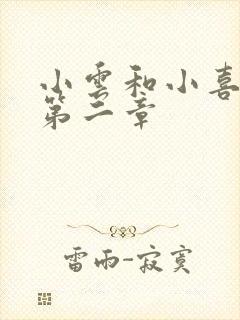 小雲和小喜
第二章
雷雨-寂寞